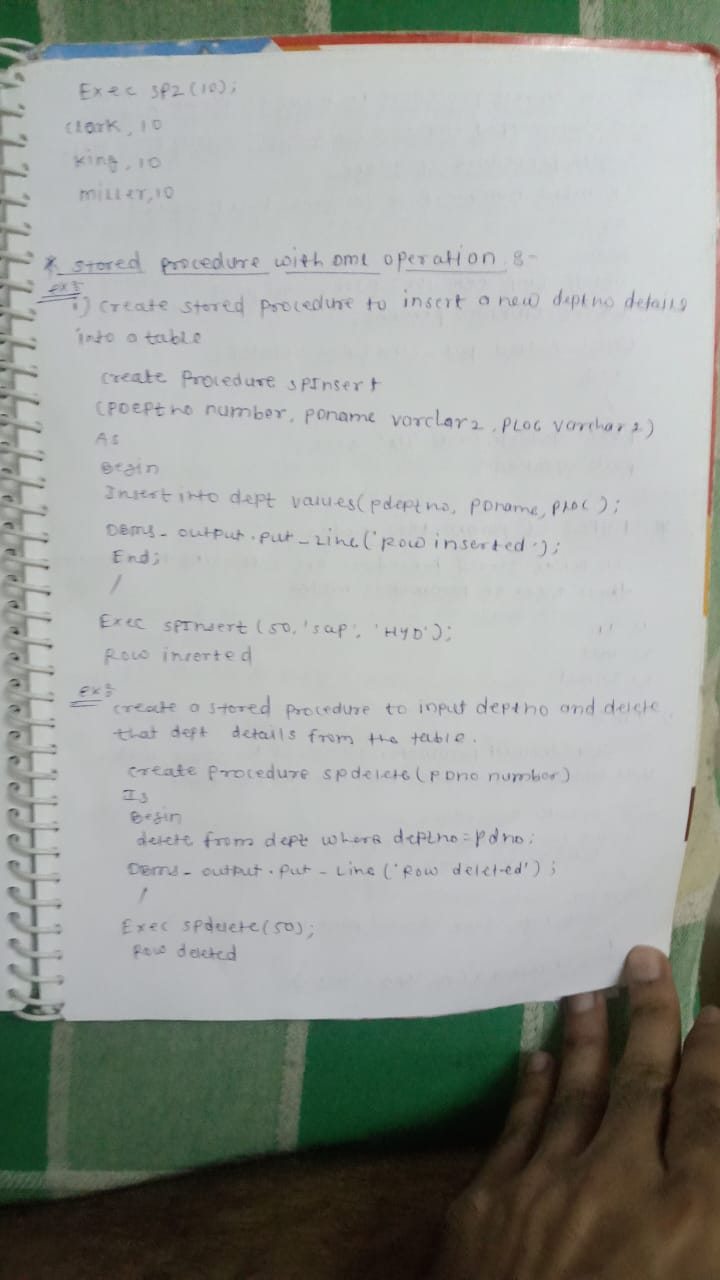 Exec sp2(10);
clark, 10
king, 10
miller, 10
* Stored procedure with DML operation :-
ex:
1) Create stored procedure to insert a new deptno details
into a table
Create Procedure spInsert
(PDeptno number, PDname varclar2, PLoc varchar2)
As
Begin
Insert into dept values(pdeptno, PDname, ploc);
Dbms_output.put_line('Row inserted');
End;
/
Exec spInsert (50, 'sap', 'HYD');
Row inserted
ex:
Create a stored procedure to input deptno and delete
that dept details from the table.
Create Procedure spdelete(PDno number)
Is
Begin
delete from dept where deptno=pdno;
Dbms_output.put_Line('Row deleted');
/
Exec spdelete(50);
Row deleted